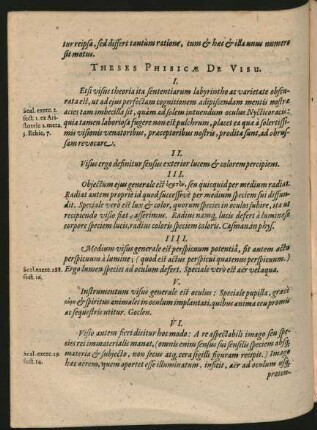 tur reipsa, sed differt tantùm ratione, cum & hac & illa unus numero
sit motus.
THESES PHISICÆ DE VISU.
I.
Etsi visus theoria ita sententiarum labyrintho ac varietate obscu-
rata est, ut ad ejus perfectam cognitionem adipiscendam mentis nostræ
acies tam imbecilla sit, quàm ad solem intuendum oculus Nycticoracis:
quia tamen laboriosa fugere nemo est pulchrum, placet ea quæ à solertissi-
mis visionis venatoribus, præceptoribus nostris, prodita sunt, ad obrus-
sam revocare.
Scal. exerc. 1.
sect. 1. ex Ari-
stotele 2. meta.
3. Rehic, 7.
II.
Visus ergo definitur sensus exterior lucem & colorem percipiens.
III.
Objectum ejus generale est seu quicquid per medium radiat.
Radiat autem propriè id quod successivè per medium speciem sui diffun-
dit. Speciale verò est lux & color, quorum species in oculo subire, ita ut
recipiendo visio fiat, asserimus. Radius namq, lucis deferi à luminoso
corpore speciem lucis, radius coloris speciem coloris. Casman. in psy.
IIII.
Medium visus generale est perspicuum potentiâ, fit autem actu
perspicuum à lumine; (quod est actus perspicui quatenus perspicuum.)
Ergo lumen species ad oculum defert. Speciale verò est aer vel aqua.
Scal. exerc. 288.
sect. 16.
V.
Instrumentum visus generale est oculus: Speciale pupilla,
& spiritus animales in oculum implantati, quibus anima ceu promis
ac sequestris utitur. Goclen.
VI.
Visio autem fieri dicitur hoc modo: A re aspectabili imago seu spe-
cies rei immaterialis manat, (omnis enim sensus fit sensilis speciem absq;
materia & subjecto, non secus atq, cera sigilli figuram recipit.) Imago
hæc aerem, quem oportet esse illuminatum, inficit, aer ad oculum usq;
Scal. exerc. 19.
sect. 14.